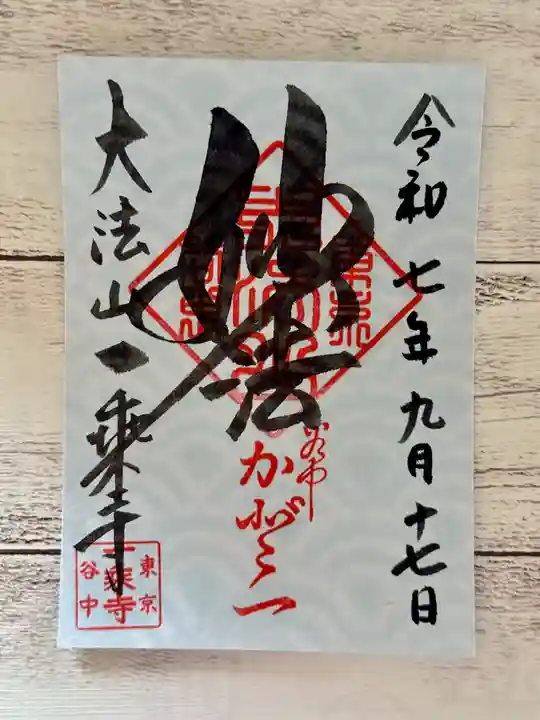 令和七年九月十七日
妙法
谷中
大法山一乗寺
東京
一乗寺
谷中